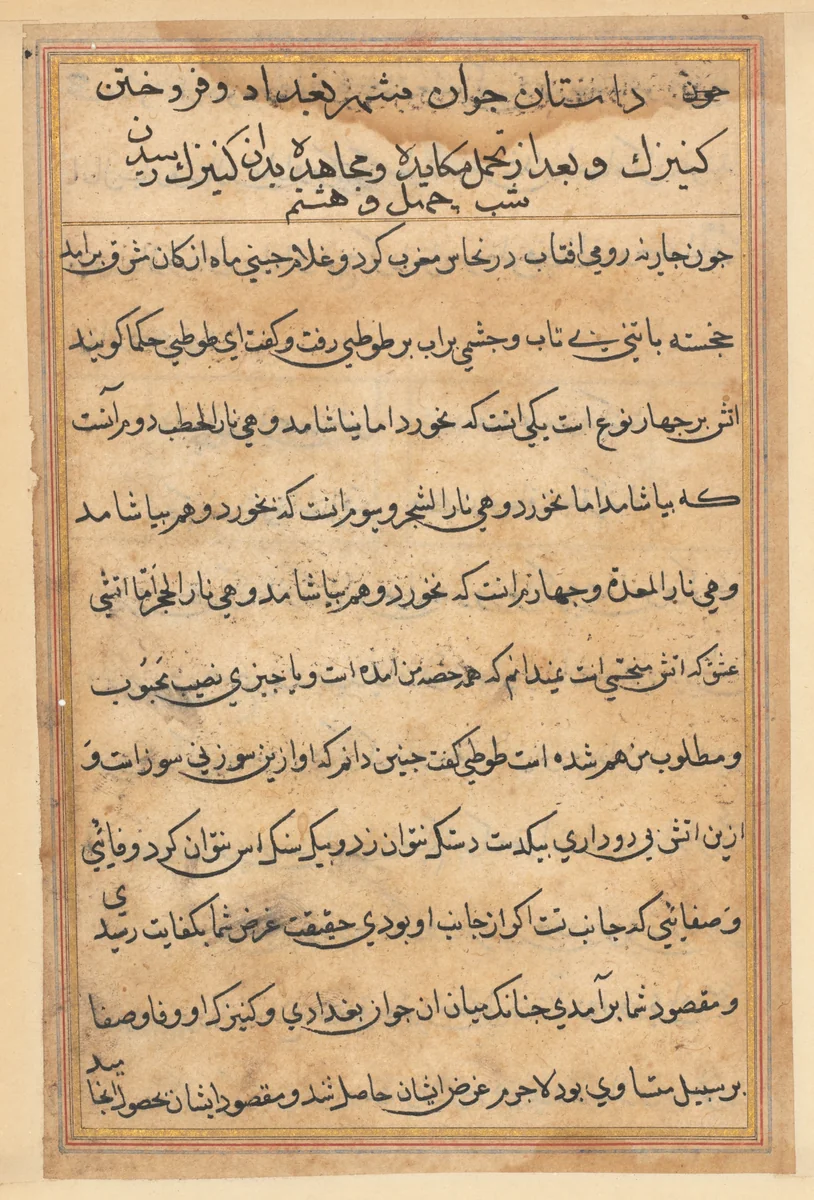 داستان جوان شهر بغداد و فروختن
کنیزک و بعد از تحمل مکایده و مجاهده بدان کنیزک رسیدن
شب چهل و هشتم
جون جاریه رومی افتاب در نخاس مغرب کرد و غلام جینی ماه از کان شرق برامد
خجسته با تنی بی تاب و جشمی براب بر طوطی رفت و کفت ای طوطی حکما کویند
اتش بر جهار نوع است یکی انست که بخورد اما نیاشامد و هی نار الحطب دوم آنست
که بیاشامد اما نخورد و هی نار الشجر و سوم انست که بخورد و هم بیاشامد
و هی نار المعدة و جهارم انست که نخورد و هم نیاشامد و هی نار الحجر اَمّا اتشی
عشق که اتش منجسی است نمیدانم که همه حصه من امده است و یا جیزی نصیب مَحبُوب
و مطلوب من هم شده است طوطی کفت جنین دانم که او ازین سوز بی سوز است وَ
ازین اتش بی دود اری بیکدست دستک نتوان زد و بیک سنک اس نتوان کرد وفائی
وَ صفائی که جانب تست اکر از جانب او بودی حقیقت غرض شما بکفایت رسیدی
و مقصود شما برآمدی جنانک میان ان جوان بغدادی و کنیزک او وفا و صفا
بر سبیل مساوی بود لاجرم غرض ایشان حاصل شد و مقصود ایشان بحصول انجامید